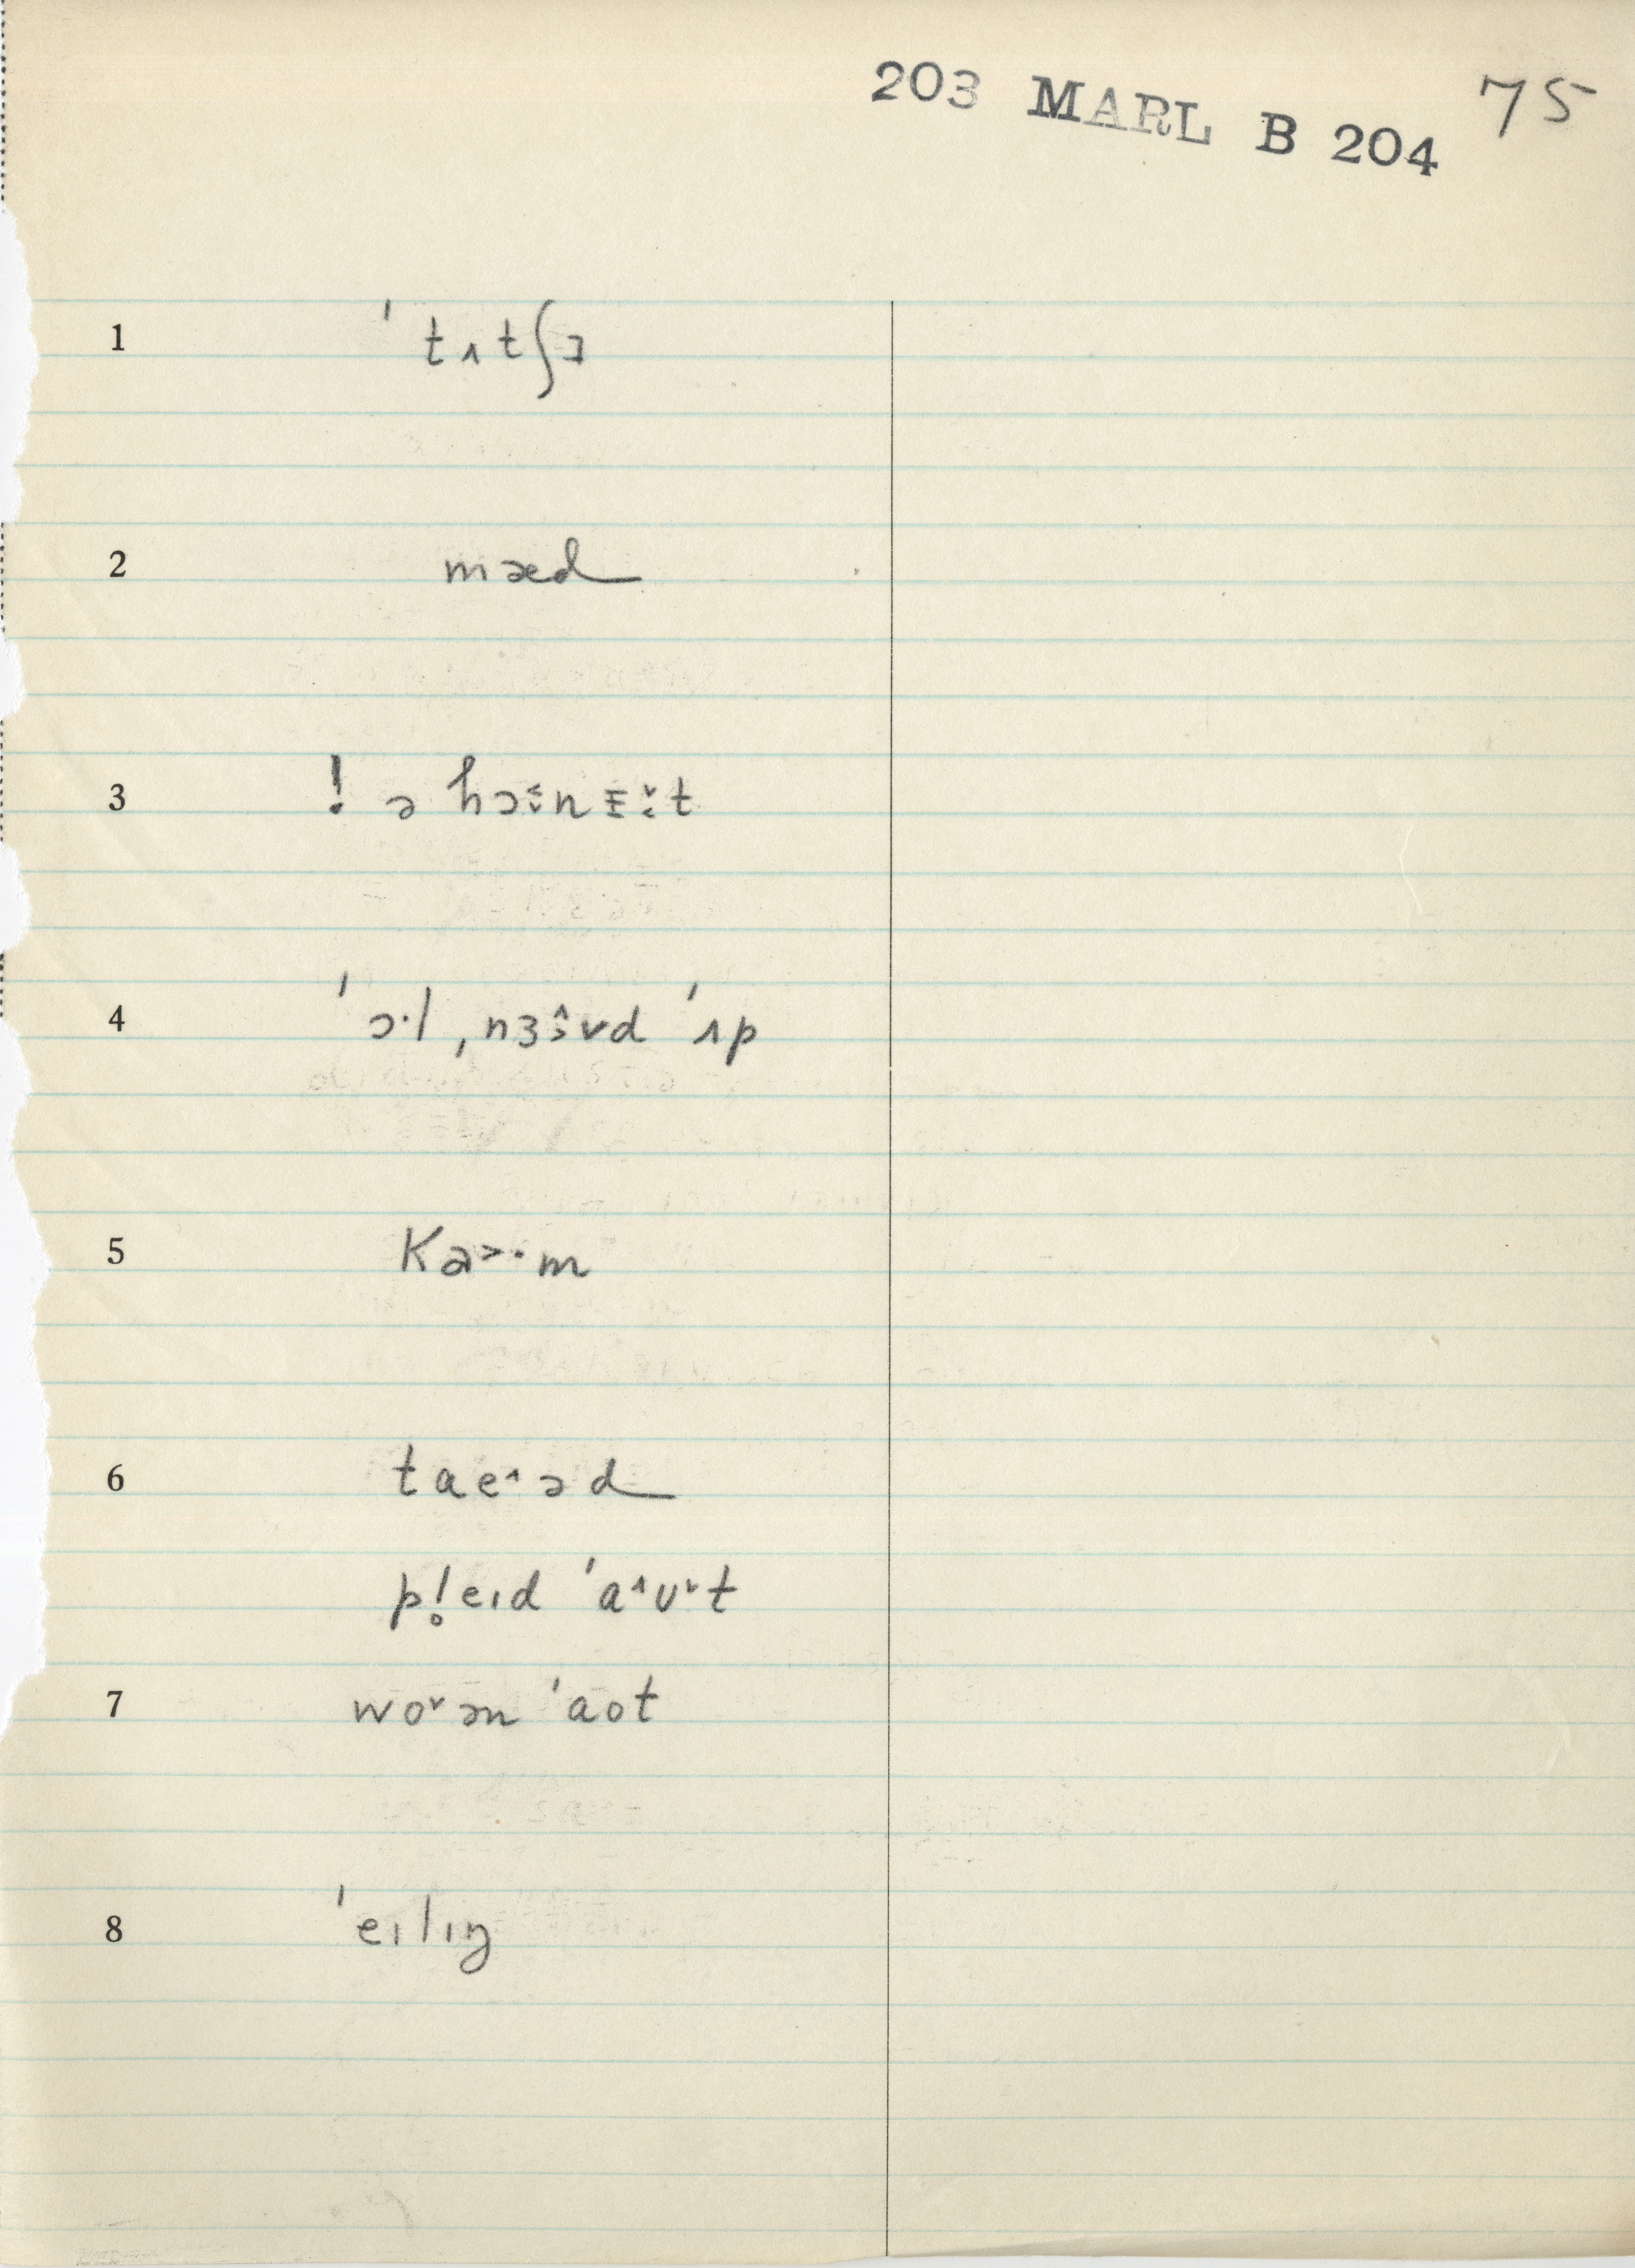 203 MARL B 204 75
1 ˈtʌtʃɪ
2 mæd
3 ! ə hɔ˂ːnɛ˅ːt
4 ˈɔ·l ˌnɜ˄ːvd ˈʌp
5 Ka˃·m
6 tae˄əd
pl̥eɪd ˈa˄ʊ˅t
7 wo˅ən ˈaot
8 ˈeɪlɪŋ